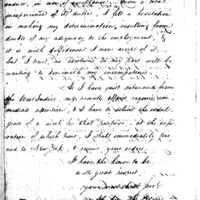 answer, in view of
importance of its duties, I felt a hesitation
in making my determination, resulting from
doubt of my adequacy to the employment. &
it is with diffidence I now accept of it,
but I trust, no exertions on my part will be
wanting to diminish my incompetence.
As I have just returned from
the West Indies, my private affairs require im-
mediate attention, & I have to solicit the indul-
gence of a week for that purpose, at the expi-
ration of which time, I shall immediately pro-
ceed to New-York & receive your orders.
I have the honor to be
with great respect,
your most obedt servt